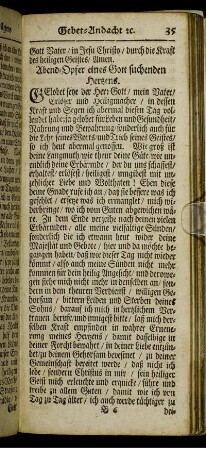 Gebet-Andacht ꝛc. 35
Gott Vater / in Jesu Christo / durch die Kraft
des heiligen Geistes/ Amen.
Abend-Opfer eines Gott suchenden
Hertzens.
GElobet seye der Herr Gott / mein Vater/
Erlöser und Heiligmacher / in dessen
Krafft und Segen ich abermal diesen Tag vol-
lendet habe/ ja gelobet für Leben und Gesundheit/
Nahrung und Bewahrung/sonderlich auch für
die Lehr seines Worts und Trost seines Geistes/
so ich heut abermal genossen. Wie groß ist
deine Langmuth/wie theur deine Güte/wie un-
endlich deine Erbärmde / der du uns schaffest/
erhaltest/ erlösest/ heiligest / umgibest mit un-
zehlicher Liebe und Wolthaten! Eben diese
deine Gnade rufe ich an / daß sie bessere was ich
gefehlet / ersetze was ich ermanglet / mich wi-
derbringe / wo ich vom Guten abgewichen wä-
re. In dem Ende verzeihe nach deinen vielen
Erbärmden/ alle meine vielfaltige Sünden/
sonderlich die ich etwann heut wider deine
Majestät und Gebote / hier und da möchte be-
gangen haben/ daß von dieser Tag nicht wider
kommet / also auch meine Sünden nicht mehr
kommen für dein heilig Angesicht/ und derowe-
gen siehe mich nicht mehr in denselben an/ son-
dern in dem theuren Verdienst / völligen Ge-
horsam / bittern Leiden und Sterben deines
Sohns / darauf ich mich in hertzlichem Ver-
trauen berufe/und inniglich bitte/ laß mich der-
selben Kraft empfinden in wahrer Erneue-
rung meines Hertzens / damit dasselbige in
deiner Forcht bewahrt / in deiner Liebe entzün-
det/zu deinem Gehorsam bereitet / zu deiner
Gemeinschaft bereitet werde / daß nicht ich
lebe / sondern Christus in mir / sein heiliger
Geist mich erleuchte und erquicke / führe und
weide zu allem Guten / damit wie ich von
Tag zu Tag älter / ich auch werde tüchtiger zu
B 6